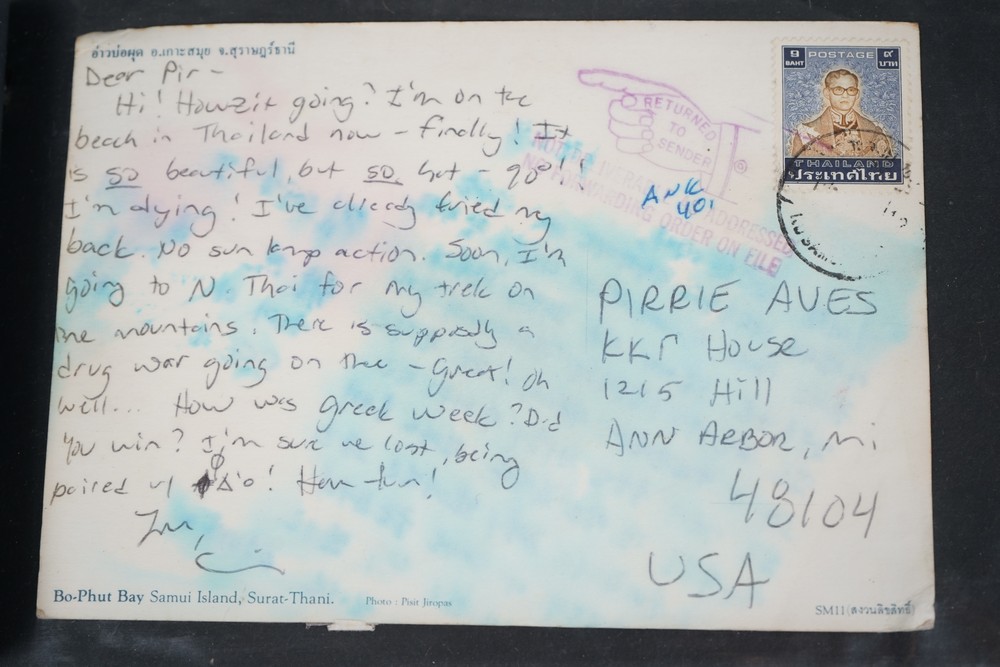 อ่าวบ่อผุด อ.เกาะสมุย จ.สุราษฎร์ธานี
Dear Pir -
Hi! Howzit going? I'm on the
beach in Thailand now - finally! It
is so beautiful, but so hot - 90°!
I'm dying! I've already fried my
back. No sun lamp action. Soon, I'm
going to N. Thai for my trek on
the mountains. There is supposedly a
drug war going on there - Great! Oh
well... How was Greek Week? Did
you win? I'm sure we lost, being
paired w/ ΦΔΘ! How fun!
Bo-Phut Bay Samui Island, Surat-Thani.
Photo : Pisit Jiropas
RETURNED
TO
SENDER
ADDRESSED
NO FORWARDING ORDER ON FILE
ANK
401
9 POSTAGE ๙
BAHT บาท
THAILAND
ประเทศไทย
PIRRIE AVES
KKΓ House
1215 Hill
ANN ARBOR, Mi
48104
USA
SM11 (สงวนลิขสิทธิ์)